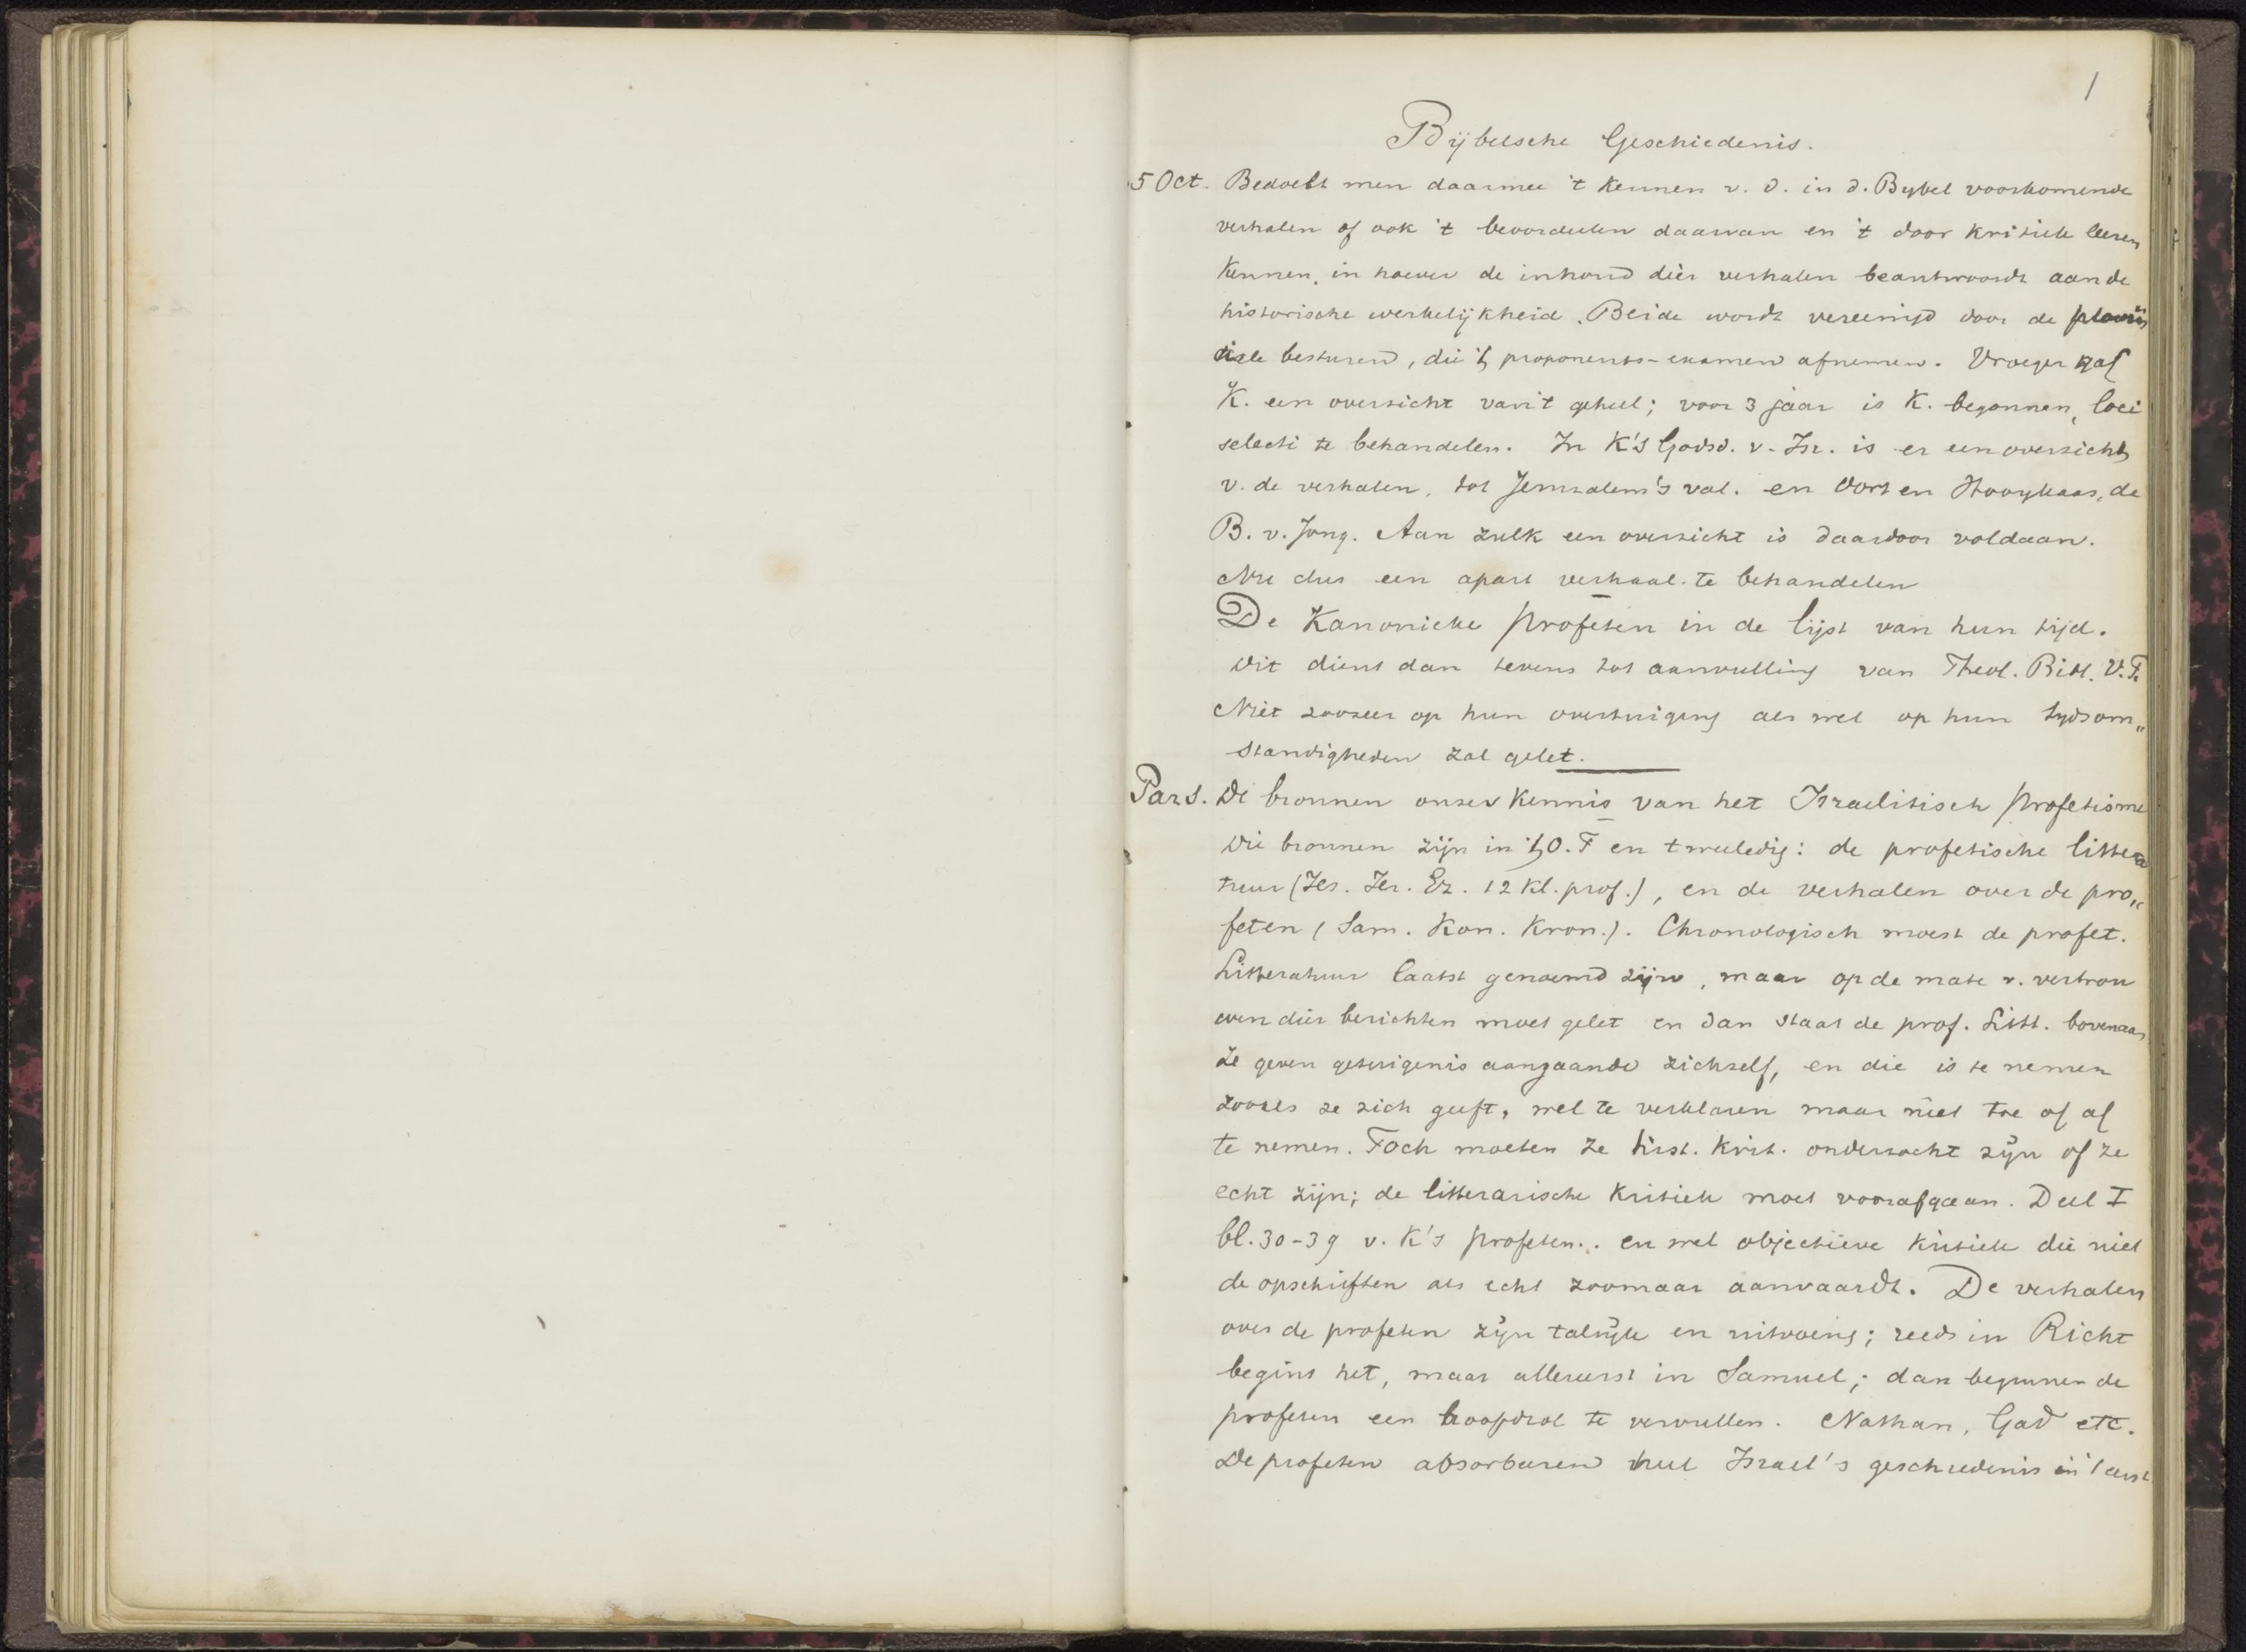 1
Bijbelsche Geschiedenis.
5 Oct. Bedoelt men daarmee 't kennen v. d. in d. Bybel voorkomende
verhalen of ook 't beoordeelen daarvan en 't door kritiek leeren
kennen, in hoever de inhoud dier verhalen beantwoordt aan de
historische werkelijkheid. Beide wordt vereenigd door de
besturen, die 't proponents-examen afnemen. Vroeger gaf
K. een overzicht van 't geheel; voor 3 jaar is K. begonnen, loci
selecti te behandelen. In K's Godsd. v. Isr. is er een overzicht
v. de verhalen, tot Jeruzalem's val. en Oort en Hooykaas, de
B. v. Jong. Aan zulk een overzicht is daardoor voldaan.
Nu dus een apart verhaal te behandelen
De Kanonieke profeten in de lijst van hun tijd.
Dit dient dan tevens tot aanvulling van Theol. Bibl. V.T.
Niet zoozeer op hun overtuiging als wel op hun tydsom„
standigheden zal gelet.
Par 1. De bronnen onzer kennis van het Israelitisch profetisme
Die bronnen zijn in 't O.T en tweeledig: de profetische littera
tuur (Jes. Jer. Ez. 12 kl. prof.), en de verhalen over de pro„
feten (Sam. Kon. Kron.). Chronologisch moest de profet.
Litteratuur laatst genoemd zijn, maar op de mate v. vertrou
wen dier berichten moet gelet en dan staat de prof. Litt. bovenaan
Ze geven getuigenis aangaande zichzelf, en die is te nemen
zooals ze zich geeft, wel te verklaren maar niet toe of af
te nemen. Toch moeten ze hist. krit. onderzocht zijn of ze
echt zijn; de litterarische kritiek moet voorafgaan. Deel I
bl. 30-39 v. K's profeten.. en wel objectieve kritiek die niet
de opschriften als echt zoomaar aanvaardt. De verhalen
over de profeten zijn talrijk en uitvoerig; reeds in Richt
begint het, maar allereerst in Samuel; dan beginnen de
profeten een hoofdrol te vervullen. Nathan, Gad etc.
De profeten absorbeeren heel Israel's geschiedenis in 't eerst